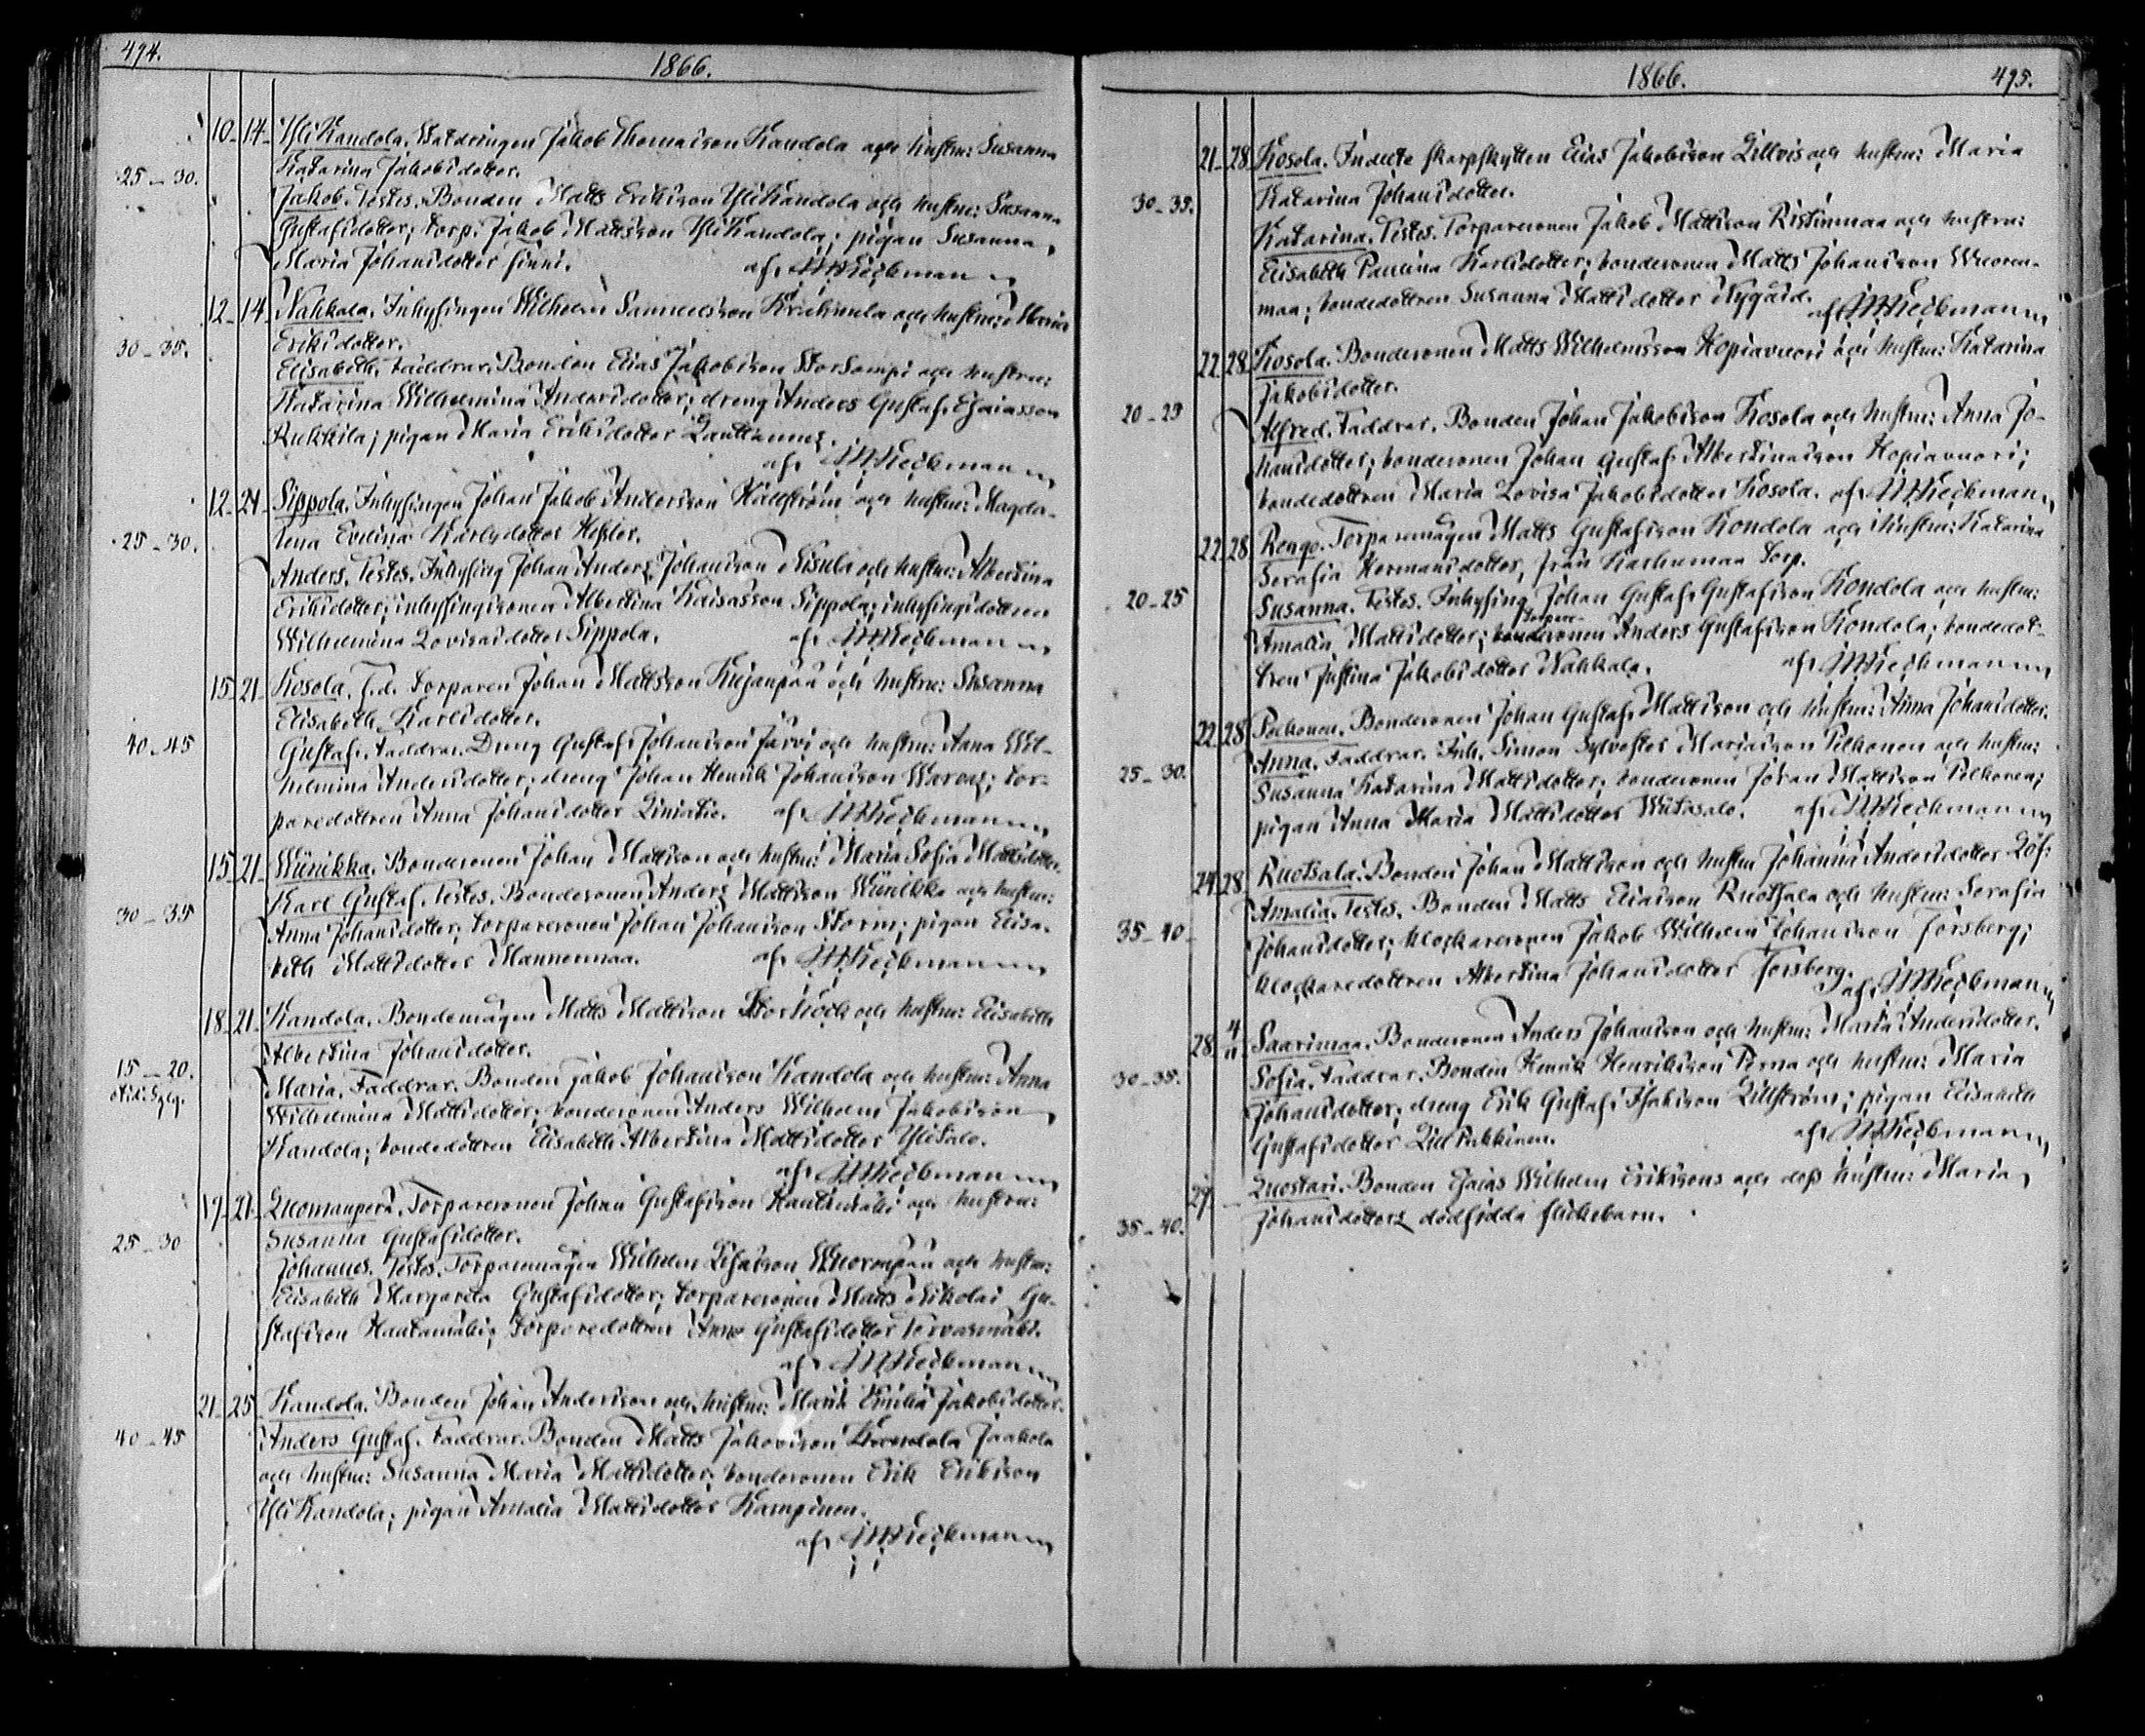 494.
1866.
10. 14. Yli Kandola. Watdringen Jakob Thomasson Kandola och hustru: Susanna
25-30. Katarina Jakobsdotter.
Jakob. Testes. Bonden Matts Eriksson Yli Kandola och hustru: Susanna
Gustafsdotter; torp: Jakob Mattsson Yli Kandola; pigan Susanna
Maria Johansdotter Sinni. af
12. 14. Nahkala. Inhysingen Wilhelm Samuelsson och hustru: Maria
30-35. Eriksdotter.
Elisabeth. Faddrar. Bonden Elias Jakobsson och hustru:
Katarina Wilhelmina Andersdotter; dreng Anders Gustaf Esaiasson
Rukkila; pigan Maria Eriksdotter
af
12. 21. Sippola. Inhysingen Johan Jakob Andersson Hällström och hustru: Magda-
25-30. lena Evelina Karlsdotter
Anders. Testes. Inhysing Johan Anders Johansson Nisula och hustru: Albertina
Eriksdotter; inhysingssonen Albertina Kaisasson Sippola; inhysingsdottren
Wilhelmina Lovisasdotter Sippola. af
15. 21. Kosola. F.d. torparen Johan Mattsson Kujanpää och hustru: Susanna
Elisabeth Karlsdotter.
40-45 Gustaf. Faddrar. Dreng Gustaf Johansson Järvi och hustru: Anna Wil-
helmina Andersdotter; dreng Johan Henrik Johansson; tor-
paredottren Anna Johansdotter af
15. 21. Wiinikka. Bondesonen Johan Mattsson och hustru: Maria Sofia Mattsdotter.
30-35 Karl Gustaf. Testes. Bondesonen Anders Mattsson Wiinikka och hustru:
Anna Johansdotter; torparesonen Johan Johansson Storm; pigan Elisa-
beth Mattsdotter Mannermaa. af
18. 21. Kandola. Bondemågen Matts Mattsson och hustru: Elisabeth
Albertina Johansdotter.
15-20. Maria. Faddrar. Bonden Jakob Johansson Kandola och hustru: Anna
Wilhelmina Mattsdotter; bondesonen Anders Wilhelm Jakobsson
Kandola; bondedottren Elisabeth Albertina Mattsdotter Ylisalo.
af
19. 21. Luomanperä. Torparesonen Johan Gustafsson Hautamäki och hustru:
25-30 Susanna Gustafsdotter.
Johannes. Testes. Torparemågen Wilhelm och hustru:
Elisabeth Margareta Gustafsdotter; torparesonen Matts Nikolai Gu-
stafsson Hautamäki; torparedottren Anna Gustafsdotter
af
21. 25 Kandola. Bonden Johan Andersson och hustru: Maria Emilia Jakobsdotter.
40-45 Anders Gustaf. Faddrar. Bonden Matts Jakobsson Kandola Jaakola
och hustru: Susanna Maria Mattsdotter; bondesonen Erik Eriksson
Yli Kandola; pigan Amalia Mattsdotter Kampinen.
af
1866. 495.
21. 28. Kosola. Indelte skarpskytten Elias Jakobsson Lillvis och hustru: Maria
30-35. Katarina Johansdotter.
Katarina. Testes. Torparesonen Jakob Mattsson Ristimaa och hustru:
Elisabeth Paulina Karlsdotter; bondesonen Matts Johansson Wuoren-
maa; bondedottren Susanna Mattsdotter Nygård. af
22. 28. Kosola. Bondesonen Matts Wilhelmsson Hopiavuori och hustru: Katarina
Jakobsdotter.
20-25 Alfred. Faddrar. Bonden Johan Jakobsson Kosola och hustru: Anna Jo-
hansdotter; bondesonen Johan Gustaf Albertinasson Hopiavuori;
bondedottren Maria Lovisa Jakobsdotter Kosola. af
22. 28. Rengo. Torparemågen Matts Gustafsson Kondola och hustru: Katarina
Serafia Hermansdotter, från Karhumaa torp.
20-25 Susanna. Testes. Inhysing Johan Gustaf Gustafsson Kondola och hustru:
torpare-
Amalia Mattsdotter; bondesonen Anders Gustafsson Kondola; bondedot-
tren Justina Jakobsdotter Nahkala. af
22. 28. Pelkonen. Bondesonen Johan Gustaf Mattsson och hustru: Anna Johansdotter.
25-30. Anna. Faddrar. Inh. Simon Sylvester Mariasson Pelkonen och hustru:
Susanna Katarina Mattsdotter; bondesonen Johan Mattsson Pelkonen;
pigan Anna Maria Mattsdotter Wiitasalo. af
24. 28. Ruotsala. Bonden Johan Mattsson och hustru Johanna Andersdotter Löf:
35-40. Amalia. Testes. Bonden Matts Eliasson Ruotsala och hustru: Serafia
Johansdotter; klockaresonen Jakob Wilhelm Johansson Forsberg;
klockaredottren Albertina Johansdotter Forsberg.
af
28. 4/11 Saarimaa. Bondesonen Anders Johansson och hustru: Maria Andersdotter.
30-35. Sofia. Faddrar. Bonden Henrik Henriksson Perna och hustru: Maria
Johansdotter; dreng Erik Gustaf Isaksson Lillström; pigan Elisabeth
Gustafsdotter af
29. Luostari. Bonden Esaias Wilhelm Erikssons och dess hustru: Maria
35-40. Johansdotters dödfödda flickebarn.